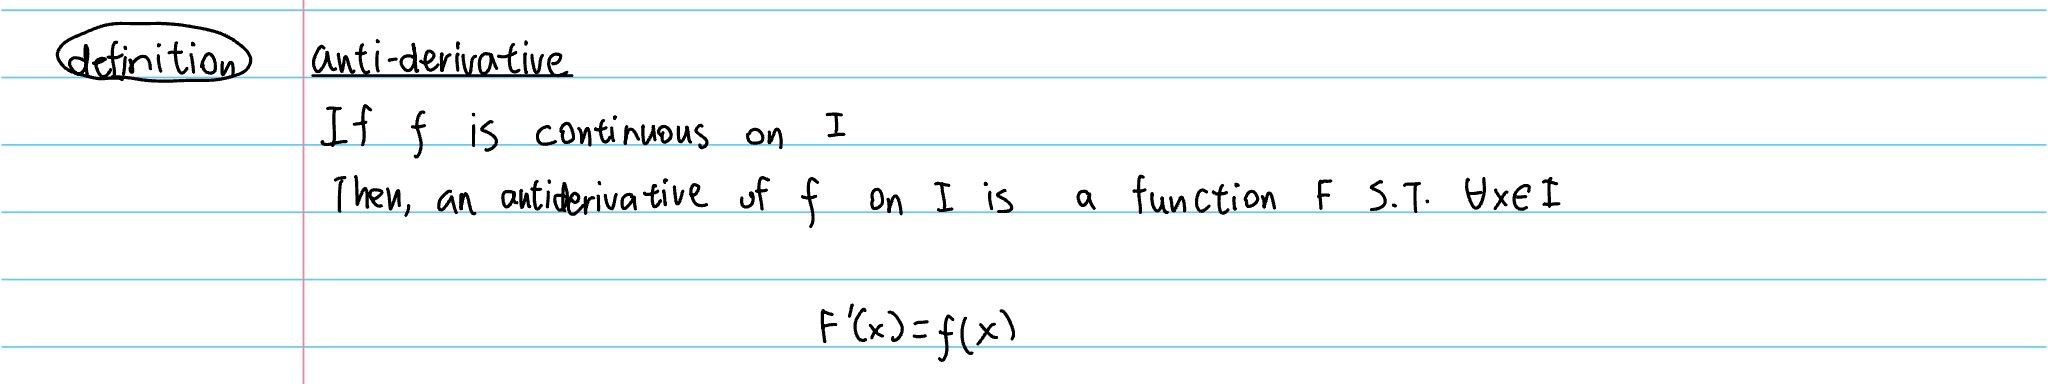 definition anti-derivative
If f is continuous on I
Then, an antiderivative of f on I is a function F S.T. ∀x∈I
F'(x)=f(x)